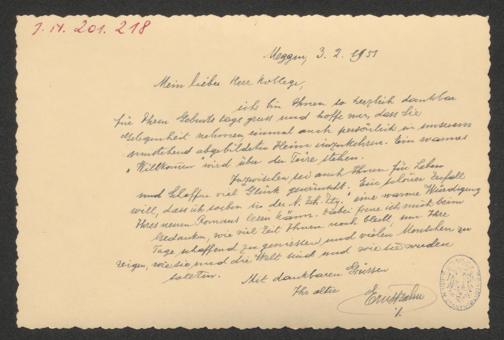 J.N. 201.218
Meggen, 3.2.1951
Mein lieber Herr Kollege,
ich bin Ihnen so herzlich dankbar
für Ihren Geburtstagsgruss und hoffe nur, dass Sie
Gelegenheit nehmen, einmal auch persönlich in unserem
umstehend abgebildeten Heim einzukehren. Ein warmes
"Willkomm" wird über der Türe stehen.
Inzwischen sei auch Ihnen für Leben
und Schaffen viel Glück gewünscht. Ein schöner Zufall
will, dass ich soeben in der N. Zch. Ztg. eine warme Würdigung
Ihres neuen Romans lesen kann. Dabei freue ich mich beim
Gedanken, wie viel Zeit Ihnen noch bleibt um Ihre
Tage schaffend zu geniessen und vielen Menschen zu
zeigen, wie sie und die Welt sind und wie sie werden
sollten.
Mit dankbaren Grüssen
Ihr alter
Ernst Zahn